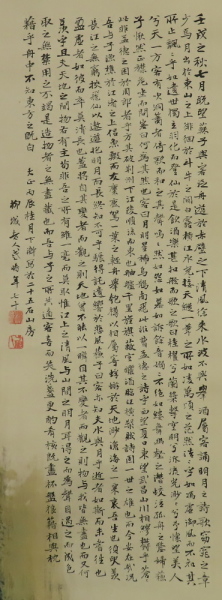 壬戌之秋七月既望蘇子與客泛舟遊於赤壁之下清風徐來水波不興舉酒屬客誦明月之詩歌窈窕之章
少焉月出於東山之上徘徊於斗牛之間白露橫江水光接天縱一葦之所如凌萬頃之茫然浩浩乎如馮虛御風而不知其
所止飄飄乎如遺世獨立羽化而登仙於是飲酒樂甚扣舷而歌之歌曰桂棹兮蘭槳擊空明兮泝流光渺渺兮予懷望美人
兮天一方客有吹洞簫者倚歌而和之其聲嗚嗚然如怨如慕如泣如訴餘音嫋嫋不絕如縷舞幽壑之潛蛟泣孤舟之嫠婦蘇
子愀然正襟危坐而問客曰何為其然也客曰月明星稀烏鵲南飛此非曹孟德之詩乎西望夏口東望武昌山川相繆鬱乎蒼蒼
此非孟德之困於周郎者乎方其破荊州下江陵順流而東也舳艫千里旌旗蔽空釃酒臨江橫槊賦詩固一世之雄也而今安在哉況
吾與子漁樵於江渚之上侶魚蝦而友麋鹿駕一葉之扁舟舉匏樽以相屬寄蜉蝣於天地渺滄海之一粟哀吾生之須臾羨
長江之無窮挾飛仙以遨遊抱明月而長終知不可乎驟得託遺響於悲風蘇子曰客亦知夫水與月乎逝者如斯而未嘗往也
盈虛者如彼而卒莫消長也蓋將自其變者而觀之則天地曾不能以一瞬自其不變者而觀之則物與我皆無盡也而又何
羨乎且夫天地之間物各有主苟非吾之所有雖一毫而莫取惟江上之清風與山間之明月耳得之而為聲目遇之而成色
取之無禁用之不竭是造物者之無盡藏也而吾與子之所共適客喜而笑洗盞更酌肴核既盡杯盤狼籍相與枕
藉乎舟中不知東方之既白